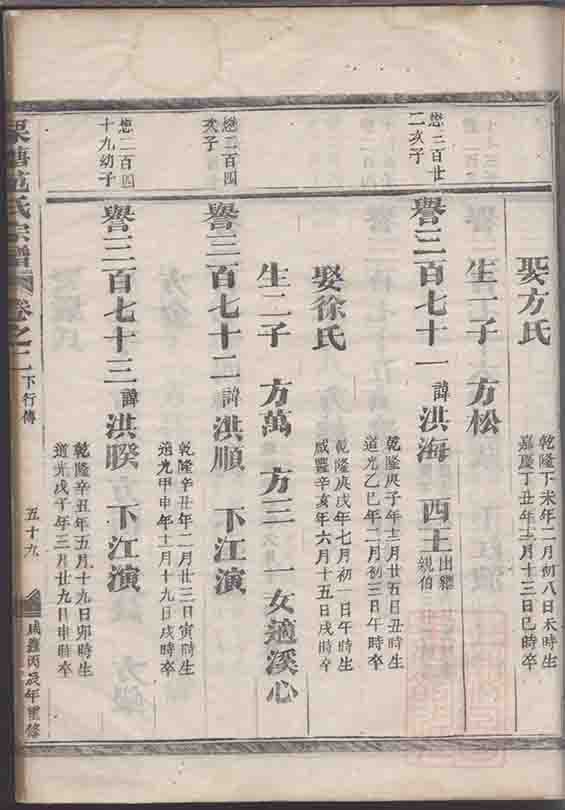 娶方氏
乾隆丁未年二月初八日未時生
嘉慶丁丑年十二月十三日巳時卒
生一子 方松
懋二百廿
二次子
譽三百七十一 諱洪海 四王 出繼
親伯
乾隆庚子年十二月廿五日丑時生
道光乙巳年二月初三日午時卒
娶徐氏
乾隆庚戌年七月初一日午時生
咸豐辛亥年六月十五日戌時卒
生二子 方萬 方三 一女適溪心
懋二百四
次子
譽三百七十二 諱洪順 下江演
乾隆辛丑年二月廿三日寅時生
道光甲申年十二月十九日戌時卒
懋二百四
十九幼子
譽三百七十三 諱洪睽 下江演
乾隆辛丑年五月十九日卯時生
道光戊午年三月廿九日申時卒
氏宗譜 卷之二 下行傳 五十九 咸豐丙辰年重修